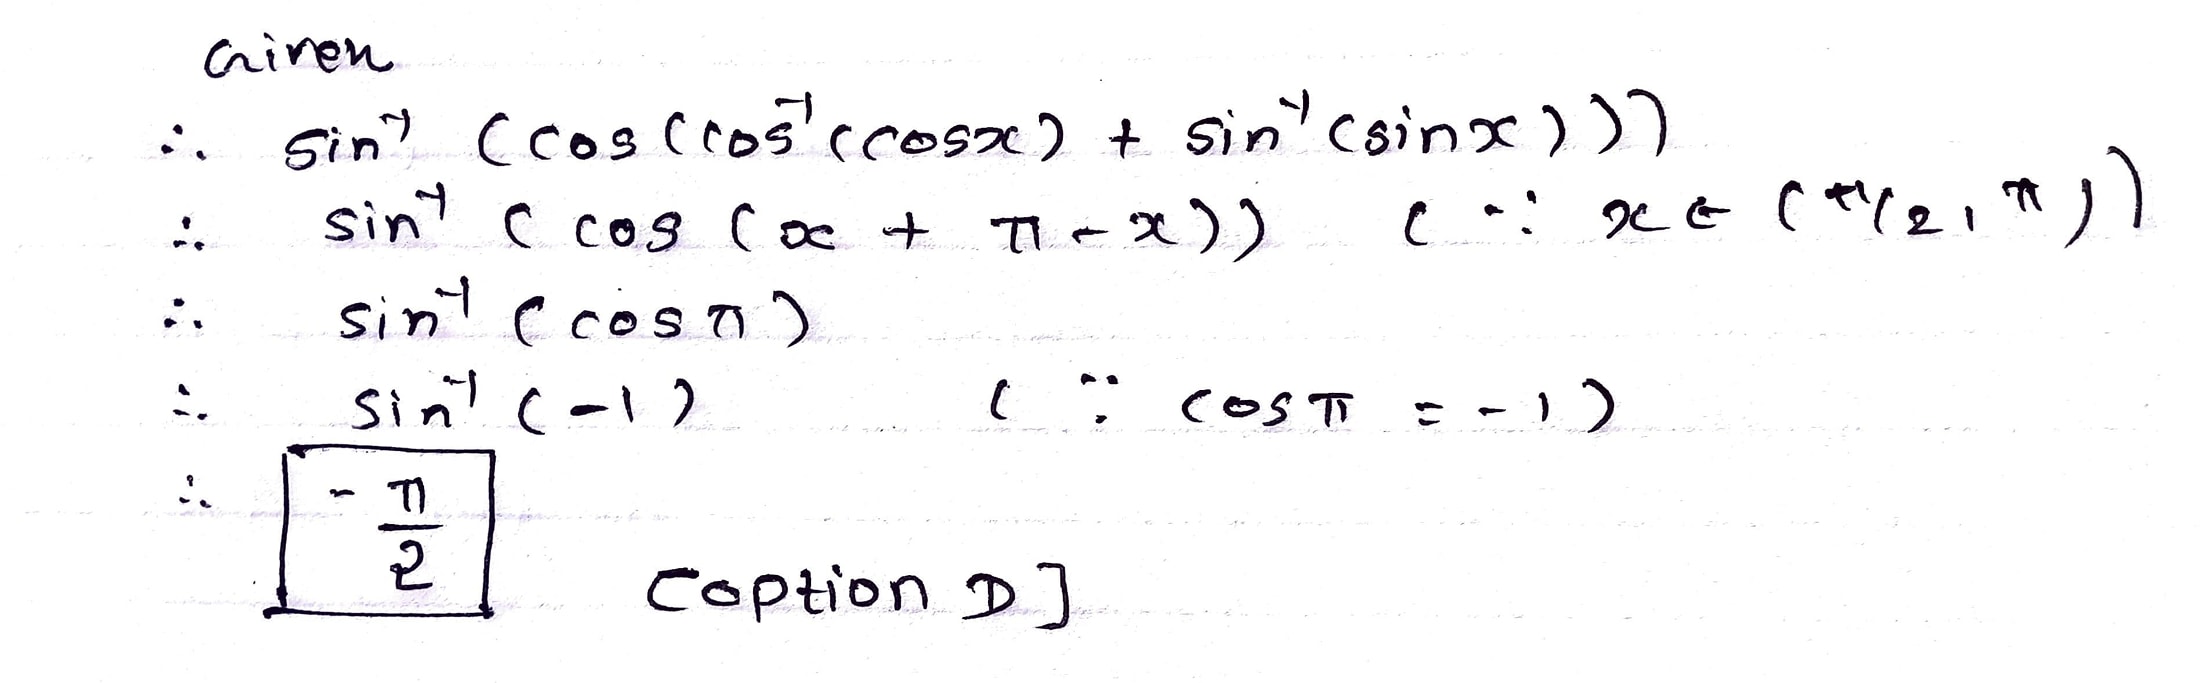 Given
∴ sin⁻¹ (cos(cos⁻¹(cosx) + sin⁻¹(sinx)))
∴ sin⁻¹ (cos (x + π - x)) (∵ x ∈ (π/2, π))
∴ sin⁻¹ (cos π)
∴ sin⁻¹ (-1) (∵ cos π = -1)
∴ -π/2 [option D]